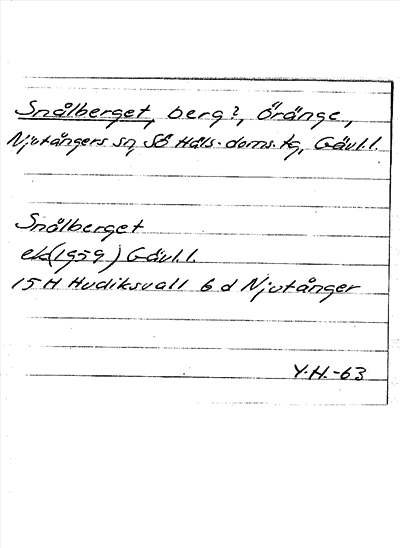 Snålberget, berg?, Öränge,
Njutångers sn, Sö Häls. doms. tg, Gävl.l.
Snålberget
ek (1959) Gävl.l.
15 H Hudiksvall 6 d Njutånger
Y.H.-63